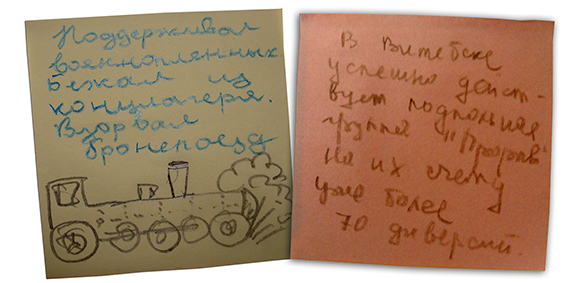 Поддерживал
военнопленных
Бежал из
концлагеря.
Взорвал
бронепоезд
В Витебске
успешно дейст-
вует подпольная
группа "Прорыв"
на их счету
уже более
70 диверсий.